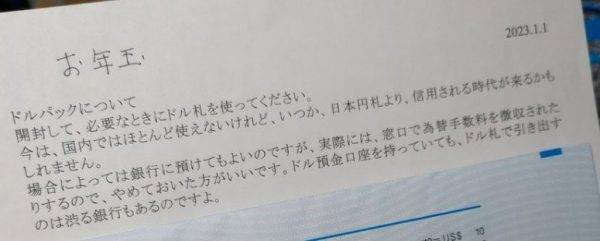 2023.1.1
お年玉
ドルパックについて
開封して、必要なときにドル札を使ってください。
今は、国内ではほとんど使えないけれど、いつか、日本円札より、信用される時代が来るかも
しれません。
場合によっては銀行に預けてもよいのですが、実際には、窓口で為替手数料を徴収された
りするので、やめておいた方がいいです。ドル預金口座を持っていても、ドル札で引き出す
のは渋る銀行もあるのですよ。
US$ 10